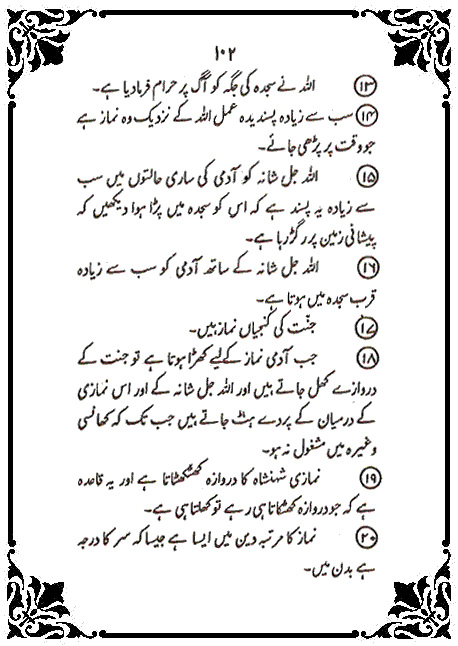 ۱۰۲
۱۳ اللہ نے سجدہ کی جگہ کو آگ پر حرام فرمادیا ہے۔
۱۴ سب سے زیادہ پسندیدہ عمل اللہ کے نزدیک وہ نماز ہے
جو وقت پر پڑھی جائے۔
۱۵ اللہ جل شانہ کو آدمی کی ساری حالتوں میں سب
سے زیادہ یہ پسند ہے کہ اس کو سجدہ میں پڑا ہوا دیکھیں کہ
پیشانی زمین پر رگڑ رہا ہے۔
۱۶ اللہ جل شانہ کے ساتھ آدمی کو سب سے زیادہ
قرب سجدہ میں ہوتا ہے۔
۱۷ جنّت کی کنجیاں نماز ہیں۔
۱۸ جب آدمی نماز کے لیے کھڑا ہوتا ہے تو جنت کے
دروازے کھل جاتے ہیں اور اللہ جل شانہ کے اور اس نمازی
کے درمیان کے پردے ہٹ جاتے ہیں جب تک کہ کھانسی
وغیرہ میں مشغول نہ ہو۔
۱۹ نمازی شہنشاہ کا دروازہ کھٹکھٹاتا ہے اور یہ قاعدہ
ہے کہ جو دروازہ کھٹکاتا ہی رہے تو کھلتا ہی ہے۔
۲۰ نماز کا مرتبہ دین میں ایسا ہے جیسا کہ سر کا درجہ
ہے بدن میں۔